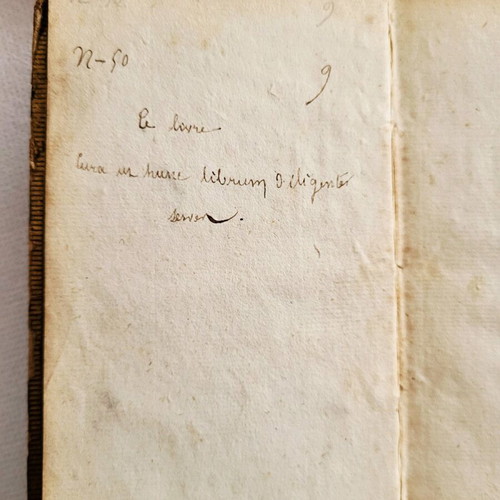 9
N-50
9
Ce livre
Cura ut hunc librum diligenter
serves.